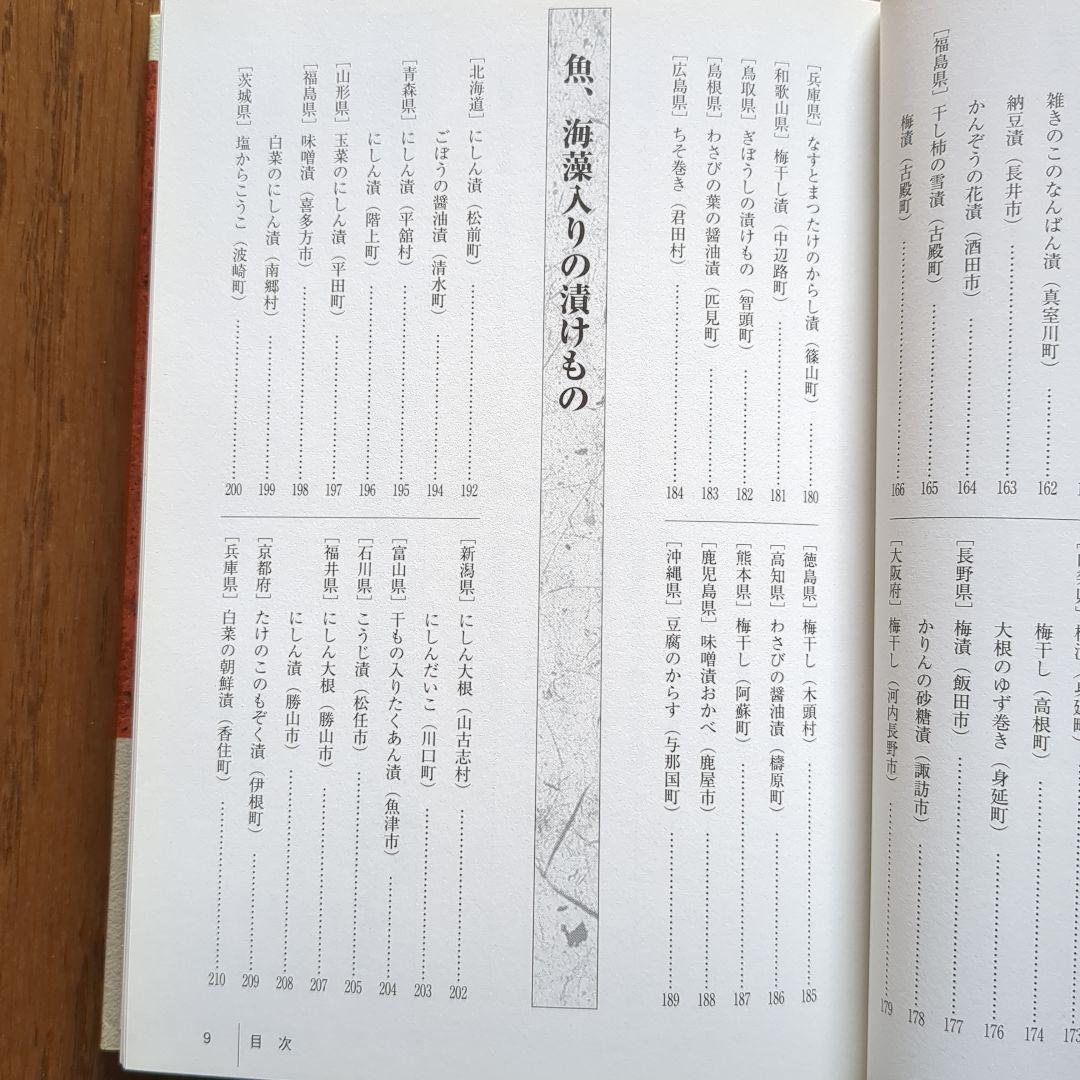 雑きのこのなんばん漬（真室川町）162
納豆漬（長井市）163
かんぞうの花漬（酒田市）164
［福島県］干し柿の雪漬（古殿町）165
梅漬（古殿町）166
173
梅干し（高根町）174
大根のゆず巻き（身延町）176
［長野県］梅漬（飯田市）177
かりんの砂糖漬（諏訪市）178
［大阪府］梅干し（河内長野市）179
［兵庫県］なすとまつたけのからし漬（篠山町）180
［和歌山県］梅干し漬（中辺路町）181
［鳥取県］ぎぼうしの漬けもの（智頭町）182
［島根県］わさびの葉の醤油漬（匹見町）183
［広島県］ちそ巻き（君田村）184
［徳島県］梅干し（木頭村）185
［高知県］わさびの醤油漬（檮原町）186
［熊本県］梅干し（阿蘇町）187
［鹿児島県］味噌漬おかべ（鹿屋市）188
［沖縄県］豆腐のからす（与那国町）189
魚、海藻入りの漬けもの
［北海道］にしん漬（松前町）192
ごぼうの醤油漬（清水町）194
［青森県］にしん漬（平舘村）195
にしん漬（階上町）196
［山形県］玉菜のにしん漬（平田町）197
［福島県］味噌漬（喜多方市）198
白菜のにしん漬（南郷村）199
［茨城県］塩からこうこ（波崎町）200
［新潟県］にしん大根（山古志村）202
にしんだいこ（川口町）203
［富山県］干もの入りたくあん漬（魚津市）204
［石川県］こうじ漬（松任市）205
［福井県］にしん大根（勝山市）207
にしん漬（勝山市）208
［京都府］たけのこのもぞく漬（伊根町）209
［兵庫県］白菜の朝鮮漬（香住町）210
9 目次